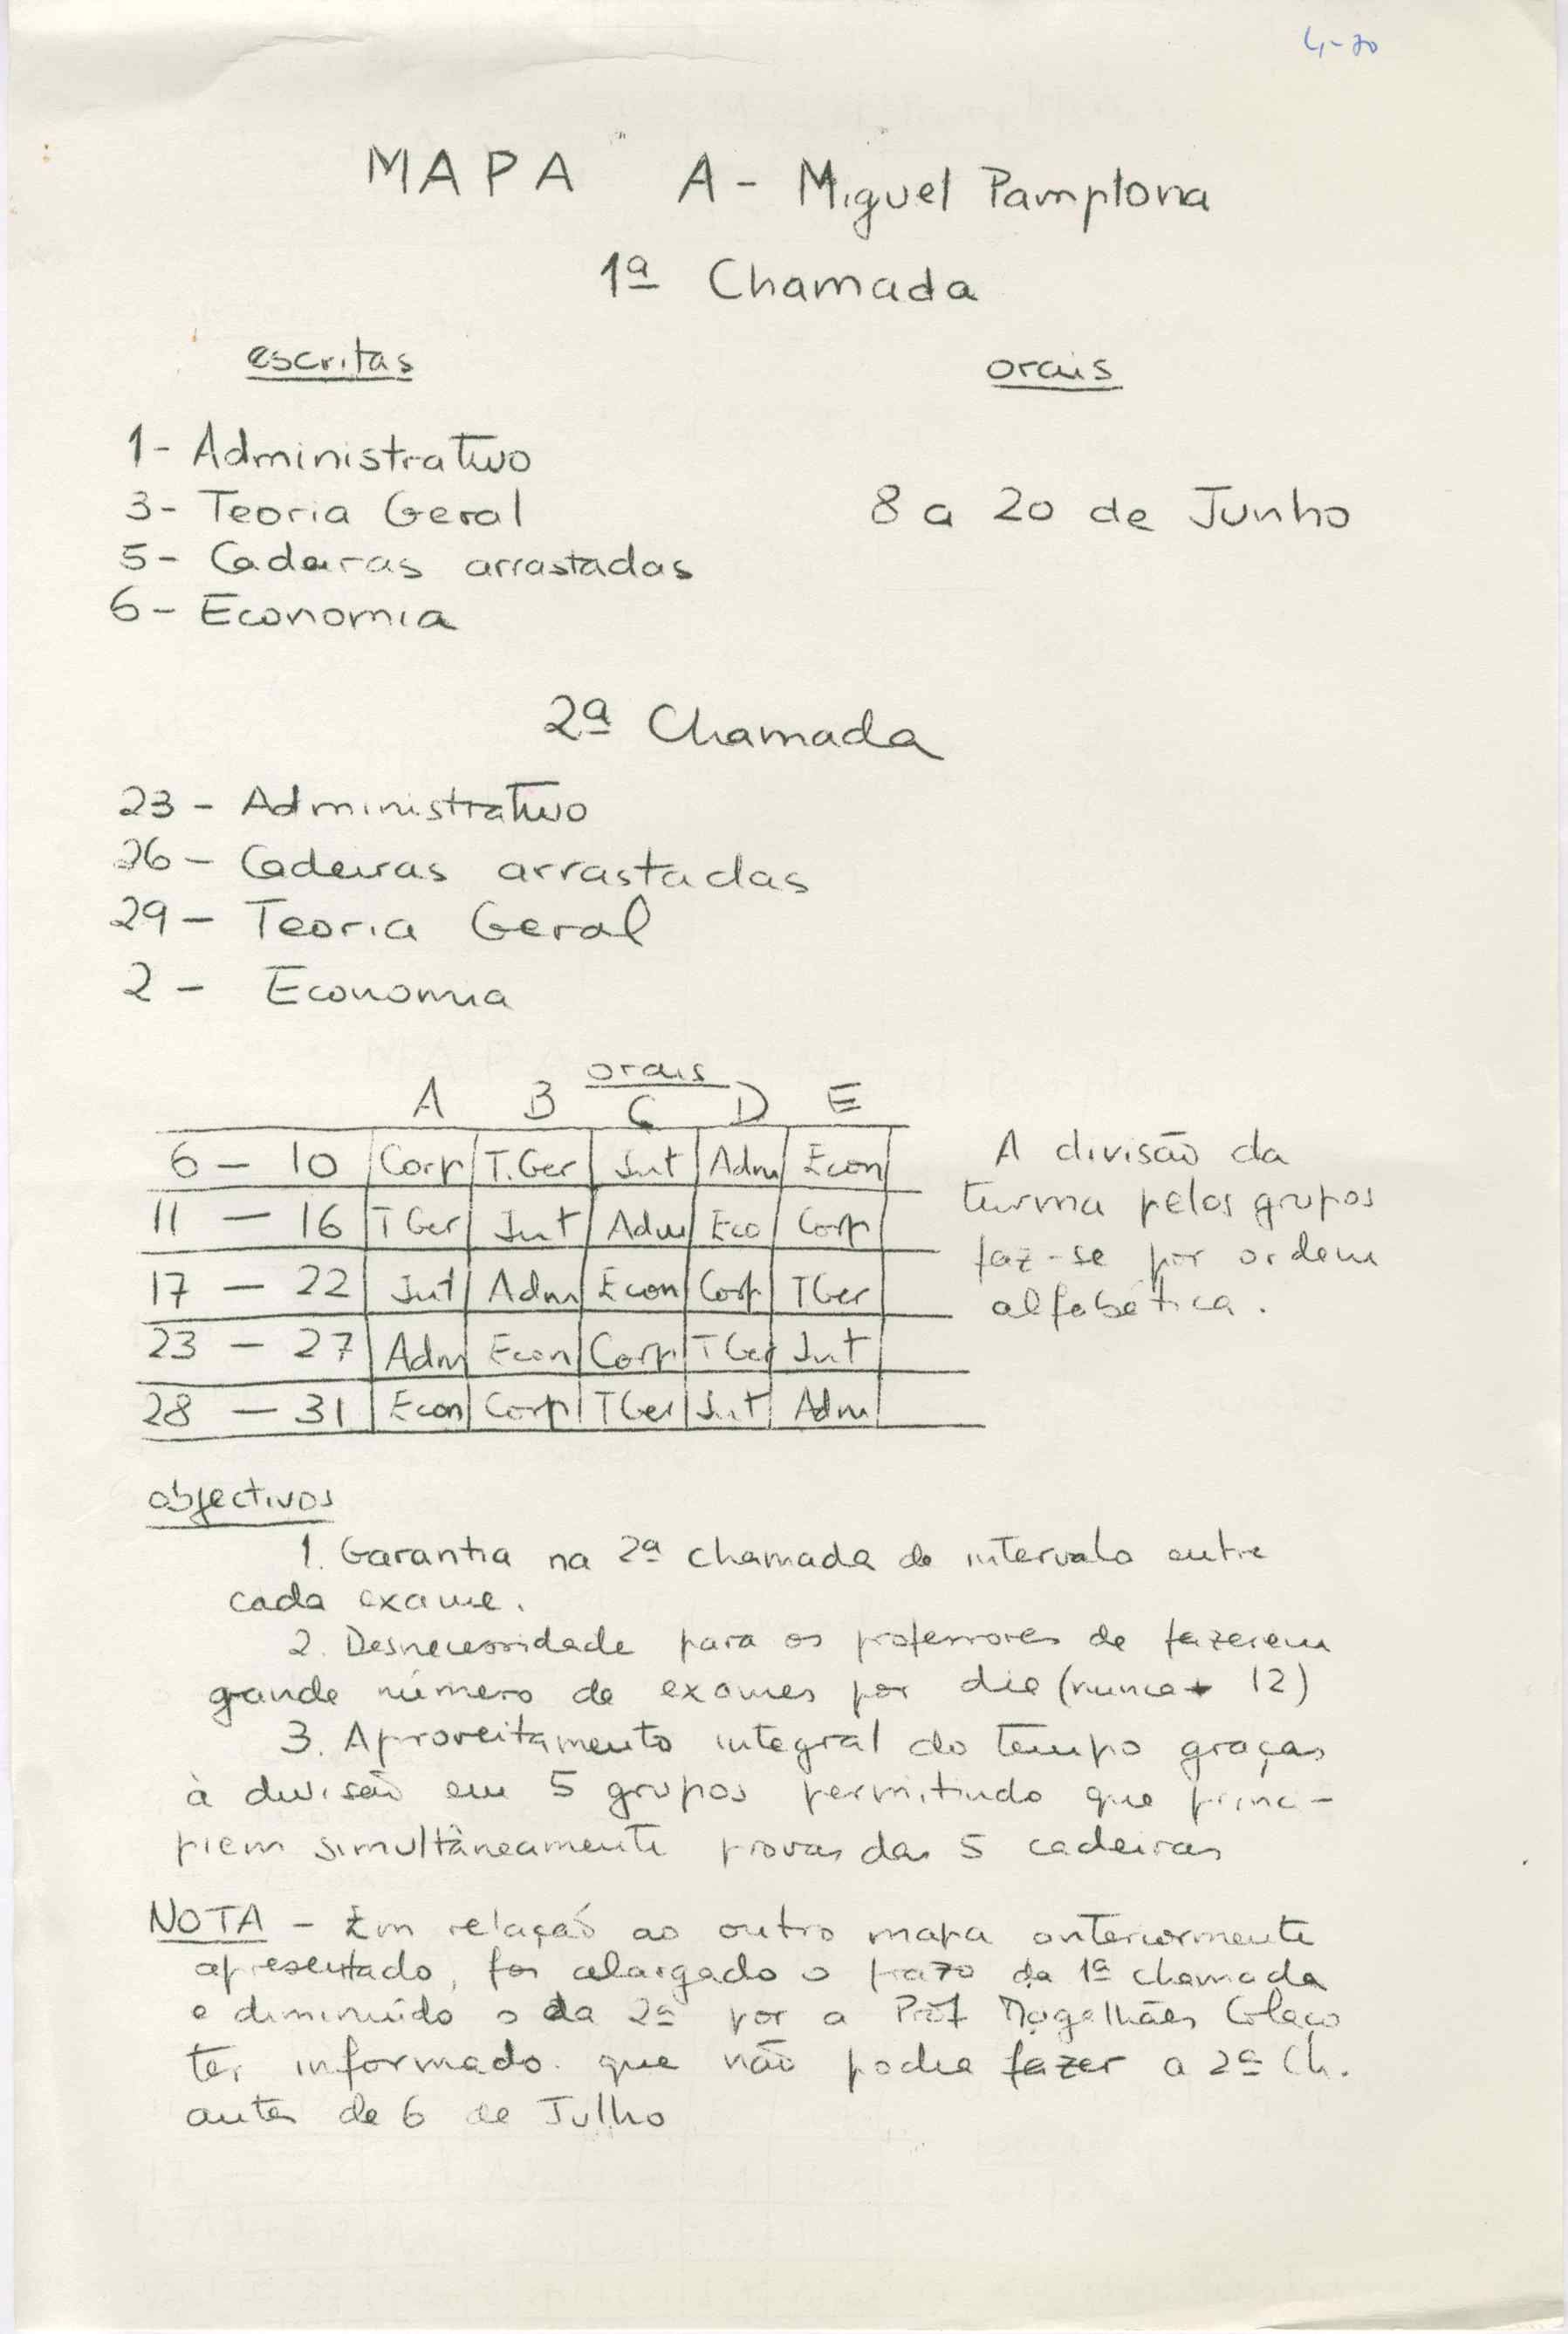 4-70
MAPA A - Miguel Pamplona
1ª Chamada
escritas orais
1- Administrativo
3- Teoria Geral 8 a 20 de Junho
5- Cadeiras arrastadas
6- Economia
2ª Chamada
23 - Administrativo
26 - Cadeiras arrastadas
29 - Teoria Geral
2 - Economia
orais
A B C D E
6 - 10 Corp T.Ger Int Adm Econ
11 - 16 TGer Int Adm Eco Corp
17 - 22 Int Adm Econ Corp TGer
23 - 27 Adm Econ Corp TGer Int
28 - 31 Econ Corp TGer Int Adm
A divisão da
turma pelos grupos
faz-se por ordem
alfabética.
objectivos
1. Garantia na 2ª chamada de intervalo entre
cada exame.
2. Desnecessidade para os professores de fazerem
grande número de exames por dia (nunca + 12)
3. Aproveitamento integral do tempo graças
à divisão em 5 grupos permitindo que princi-
piem simultâneamente provas das 5 cadeiras
NOTA - Em relação ao outro mapa anteriormente
apresentado, foi alargado o prazo da 1ª chamada
e diminuído o da 2ª por a Prof Magalhães Colaço
ter informado que não podia fazer a 2ª Ch.
antes de 6 de Julho